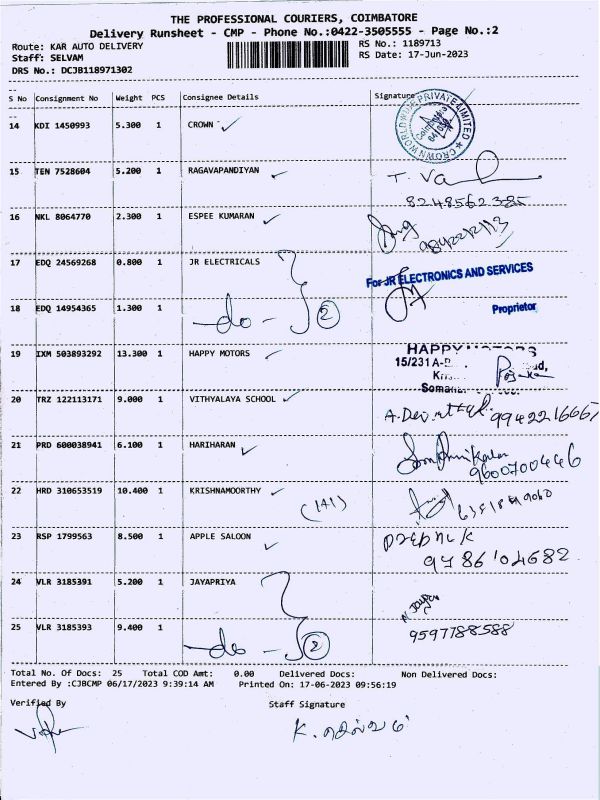 THE PROFESSIONAL COURIERS, COIMBATORE
Delivery Runsheet - CMP - Phone No.:0422-3505555 - Page No.:2
Route: KAR AUTO DELIVERY RS No.: 1189713
Staff: SELVAM RS Date: 17-Jun-2023
DRS No.: DCJB118971302
S No Consignment No Weight PCS Consignee Details Signature
14 KDI 1450993 5.300 1 CROWN
CROWN WORLDWIDE PRIVATE LIMITED Coimbatore
15 TEN 7528604 5.200 1 RAGAVAPANDIYAN
8248562385
16 NKL 8064770 2.300 1 ESPEE KUMARAN
9842212113
17 EDQ 24569268 0.800 1 JR ELECTRICALS
For JR ELECTRONICS AND SERVICES
18 EDQ 14954365 1.300 1 -do- 2
Proprietor
19 IXM 503893292 13.300 1 HAPPY MOTORS
HAPPY
15/231A
20 TRZ 122113171 9.000 1 VITHYALAYA SCHOOL
21 PRD 600038941 6.100 1 HARIHARAN
9600700446
22 HRD 310653519 10.400 1 KRISHNAMOORTHY
(141)
23 RSP 1799563 8.500 1 APPLE SALOON
9786104682
24 VLR 3185391 5.200 1 JAYAPRIYA
25 VLR 3185393 9.400 1 -do- 2
9597788588
Total No. Of Docs: 25 Total COD Amt: 0.00 Delivered Docs: Non Delivered Docs:
Entered By :CJBCMP 06/17/2023 9:39:14 AM Printed On: 17-06-2023 09:56:19
Verified By Staff Signature